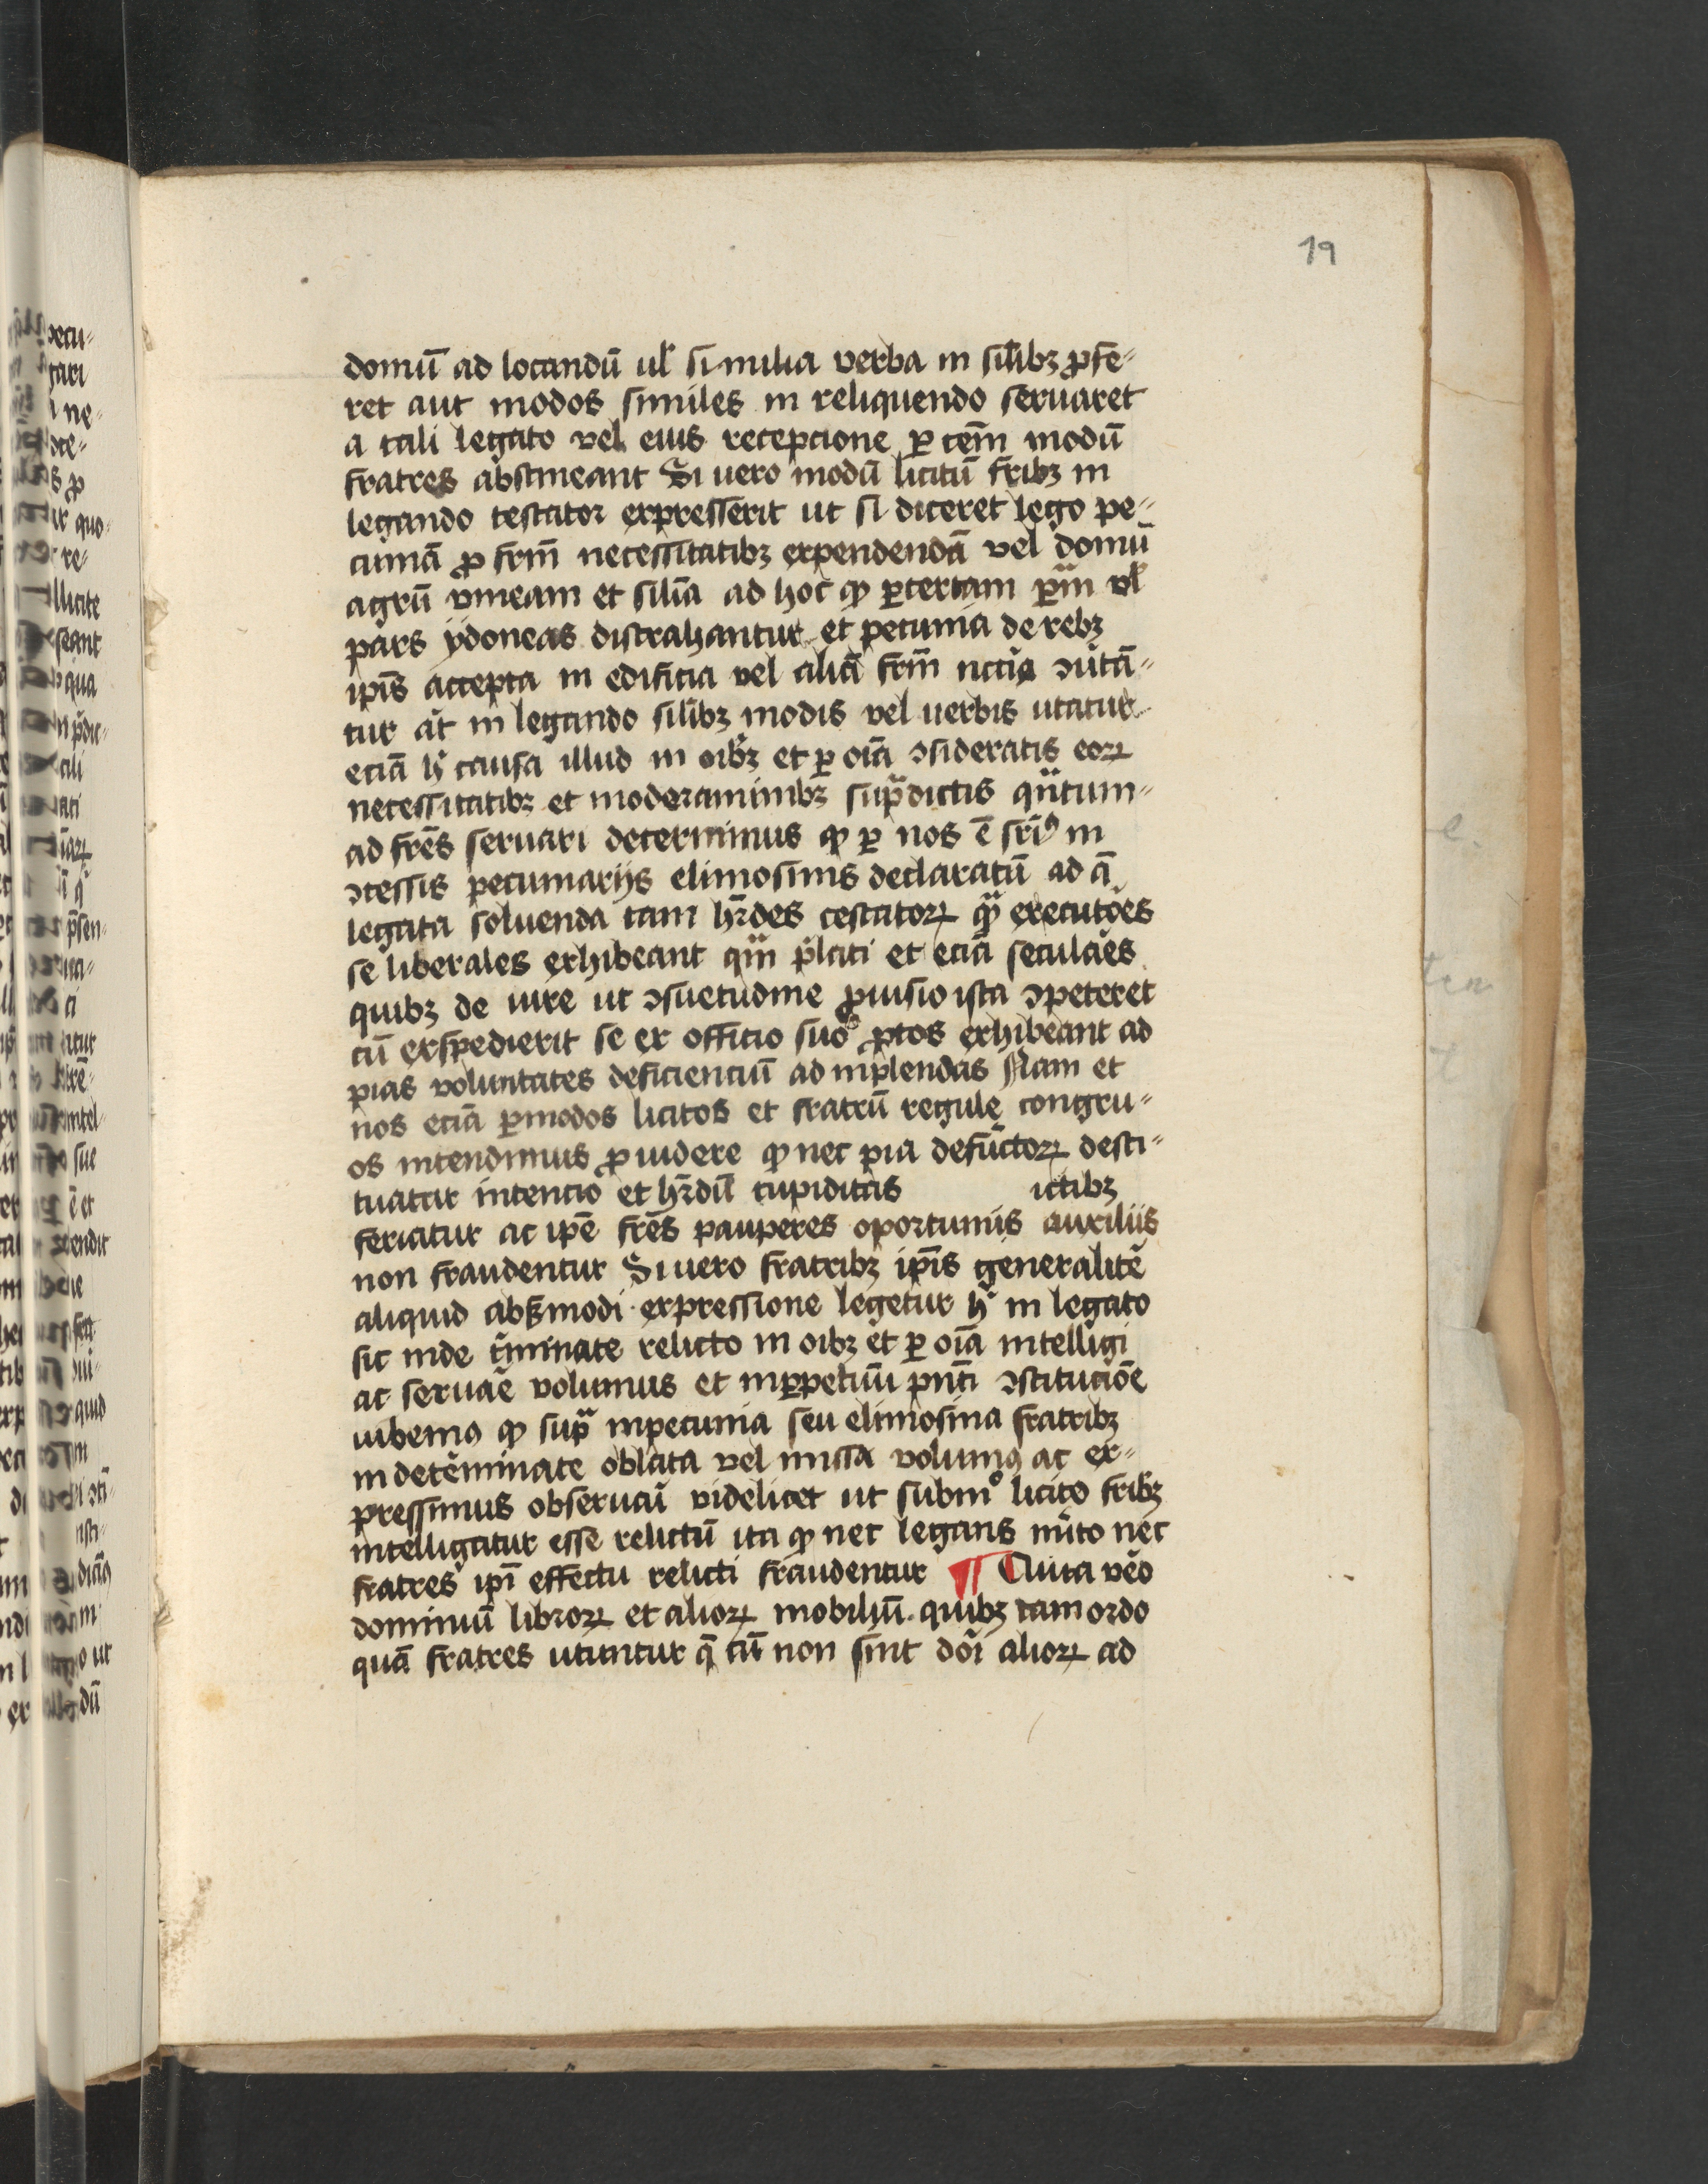 19
domū ad locandū ul̄ si milia verba in silībꝫ ꝓfe-
ret aut modos similes in reliquendo seruaret
a tali legato vel eius recepcione ꝑ tēm modū
fratres abstineant Si uero modū licitū fribꝫ in
legando testator expresserit ut si diceret lego pe-
cuniā ꝓ frm̄ necessitatibꝫ expendendā vel domū
agrū vineam et silīa ad hoc ꝙ ꝑcertam ꝑm vl̄
pars ydoneas distrahantur et pecunia de rebꝫ
ipīs accepta in edificia vel aliā frm̄ nccīa ↄu̇tā-
tur aūt in legando silībꝫ modis vel uerbis utatur
eciā h̄ causa illud in oībꝫ et ꝑ oīa ↄsideratis eoꝝ
necessitatibꝫ et moderaminibꝫ supᷓdictis qᷓntum-
ad frēs seruari determimus ꝙ ꝑ nos ē srīꝰ in
ↄcessis pecuniarijs elimosinis declaratū ad ā
legata soluenda tam hr̄des testatoꝝ qᷓ executōes
se liberales exhibeant qᷓm p̄lati et eciā seculāes
quibꝫ de iure ut ↄsuetudine ꝓuisio ista ↄpeteret
cū exspedierit se ex officio suo ꝓtos exhibeant ad
pias voluntates deficienciū ad inplendas Nam et
nos eciā ꝑmodos licitos et fratrū regule congru-
os intendimus ꝓuidere ꝙ nec pia defūctoꝝ desti-
tuatur intencio et hr̄dū cupiditas ictibꝫ
feriatur ac ipē frēs pauperes oportunis auxiliis
non fraudentur Si uero fratribꝫ ipīs generalitē
aliquid absꝫmodi expressione legetur h̄ in legato
sic inde t̄minate relicto in oībꝫ et ꝑ oīa intelligi
ac seruāe volumus et inꝑpetuū pn̄ti ↄstitucōe
iubemꝰ ꝙ supᷓ inpecunia seu elimosina fratribꝫ
in detēminate oblata vel missa volumꝰ ac ex-
pressimus obseruāi videlicet ut submͦ licito fribꝫ
intelligatur esse relictū ita ꝙ nec legans m̄ito nec
fratres ipī effectu relicti fraudentur ¶ Quia vēo
dominiū libroꝝ et alioꝝ mobiliū quibꝫ tam ordo
quā fratres utuntur q̄ cū non sint dōi alioꝝ ad